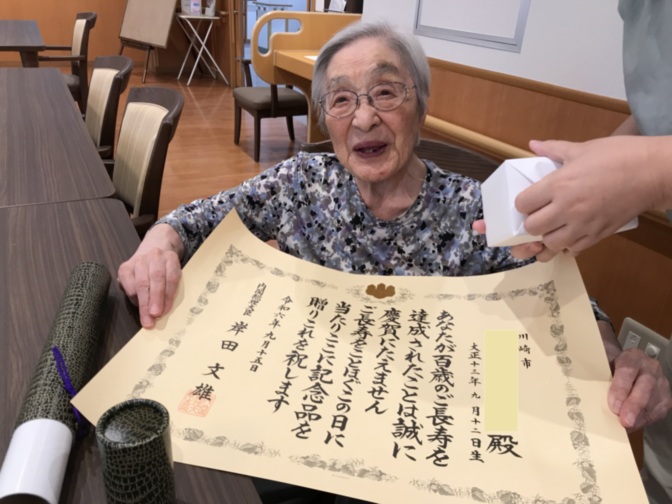 川崎市
殿
大正十三年 九月十二日生
あなたが百歳のご長寿を
達成されたことは誠に
慶賀にたえません
ご長寿をことほぐこの日に
当たりここに記念品を
贈りこれを祝します
令和六年九月十五日
内閣総理大臣 岸田文雄